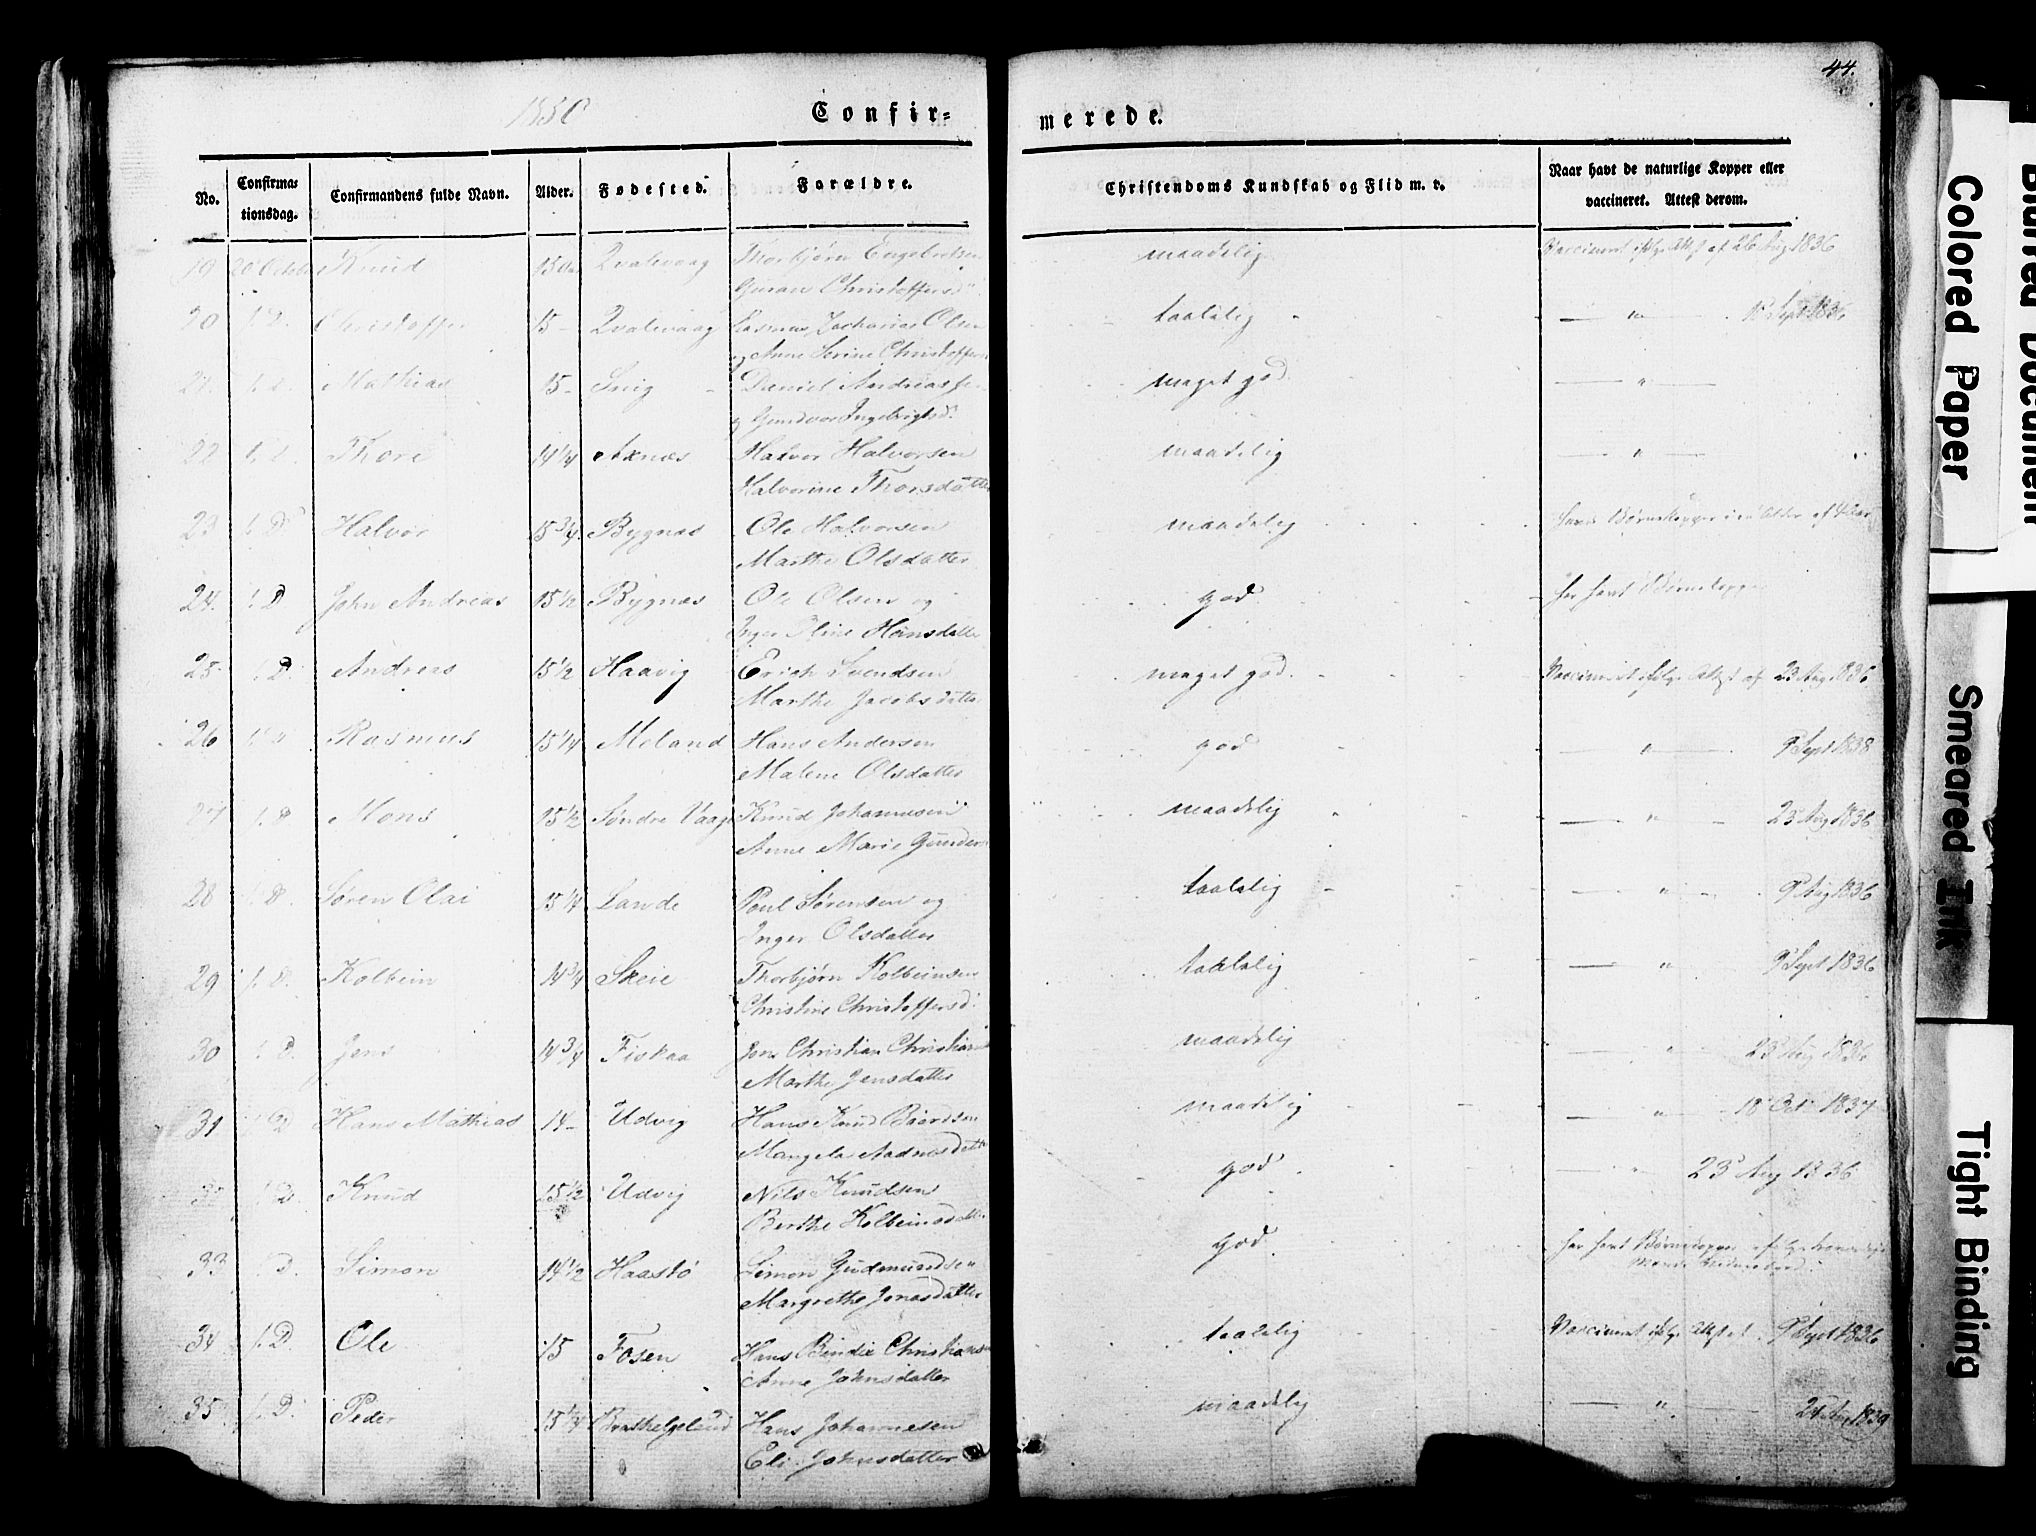 44.
1850
Confir- merede.
No. Confirmationsdag. Confirmandens fulde Navn. Alder. Fødested. Forældre. Christendoms Kundskab og Flid m. v. Naar havt de naturlige Kopper eller vaccineret. Attest derom.
19 20 October Knud 15 Qvalevaag Thorbjørn Engebretsen maadelig 26 Aug 1836
Christoffersd
20 1. D. Christoffer 15 - Qvalevaag Rasmus Zacharias Olsen taalelig - " - Sept 1836
og Anne Serine Christoffers
21. 1. D. Mathias 15 - Snig Daniel Andreassen meget god - " -
og Gundvor Ingebrigtsd.
22 1. D. Thore 14 1/4 Axnæs Halvor Halvorsen maadelig - " -
Halvorine Thorsdatter
23 1. D Halvor 15 3/4 Bygnæs Ole Halvorsen maadelig havt Børnekopper i
Marthe Olsdatter
24. 1. D John Andreas 15 1/2 Bygnæs Ole Olsen og god har havt Børnekopper
Inger Hansdatter
25 1. D. Andreas 15 1/2 Haavig Erich Svendsen meget god. Vaccineret ifølge Attest af 23 Aug 1836
Marthe Jacobsdatter
26 1. D Rasmus 15 1/4 Meland Hans Andersen god - " - 9 Sept 1838
Malene Olsdatter
27 1. D Mons 15 1/2 Søndre Vaage Knud Johannesen maadelig - " - 23 Aug 1836
Anne Marie Gunders
28 1. D. Søren Olai 15 1/4 Lande Poul Sørensen og taalelig - " - 9 Aug 1836
Inger Olsdatter
29 1. D. Kolbein 14 3/4 Skeie Thorbjørn Kolbeinsen taalelig - " - 9 Sept 1836
Christine Christoffersd.
30 1. D. Jens 14 3/4 Fiskaa Jens Christian Christians maadelig - " - 23 Aug 1836
Marthe Jensdatter
31 1. D Hans Mathias 14 - Udvig Hans Knud Baardsen maadelig - " - 18 Oct 1837
Mangela Aadnesdatter
1. D. Knud 15 1/2 Udvig Nils Knudsen god - " - 23 Aug 1836
Berthe Kolbeinsdatter
33 1. D. Simon 14 1/2 Haastø Simon Gudmundsen god har havt Børnekopper
Margrethe Jonasdatter
34 1. D. Ole 15 Fosen Hans Bendix Christians taalelig Vaccineret ifølge Attest af 9 Sept 1836
Anne Johnsdatter
35 1. D. Peder 15 1/4 Bratthelgeland Hans Johannesen maadelig - " - 24 Aug 1839
Eli Johnsdatter
Blurred Document
Colored Paper
Smeared Ink
Tight Binding